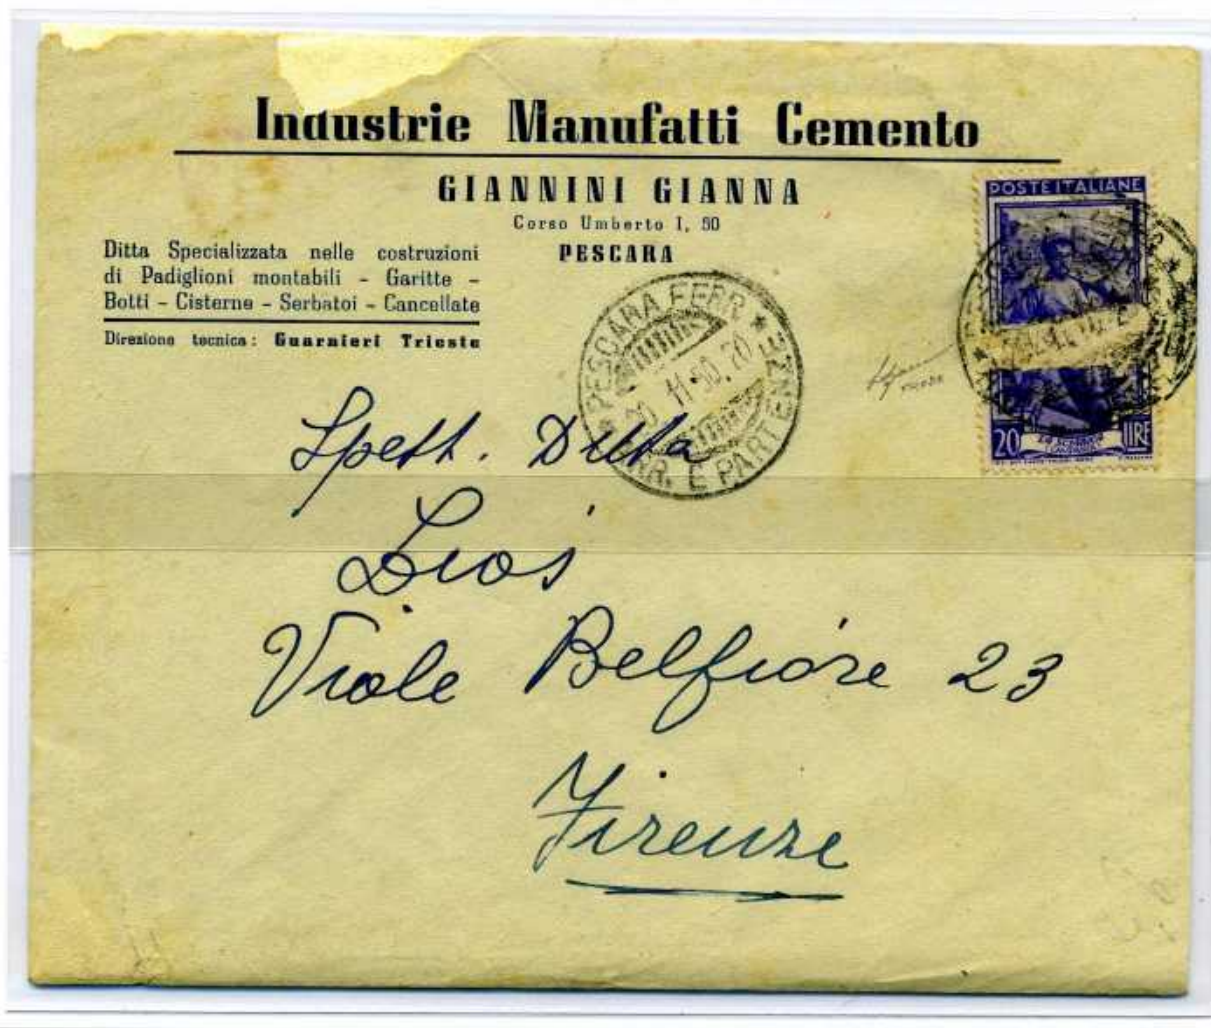 Industrie Manufatti Cemento
GIANNINI GIANNA
Corso Umberto I, 50
PESCARA
Ditta Specializzata nelle costruzioni
di Padiglioni montabili - Garitte -
Botti - Cisterne - Serbatoi - Cancellate
Direzione tecnica: Guarnieri Trieste
POSTE ITALIANE
20 LIRE
PESCARA FERR.
20 11-50.20
ARR. E PARTENZE
Spett. Ditta
Dios
Viale Belfiore 23
Firenze